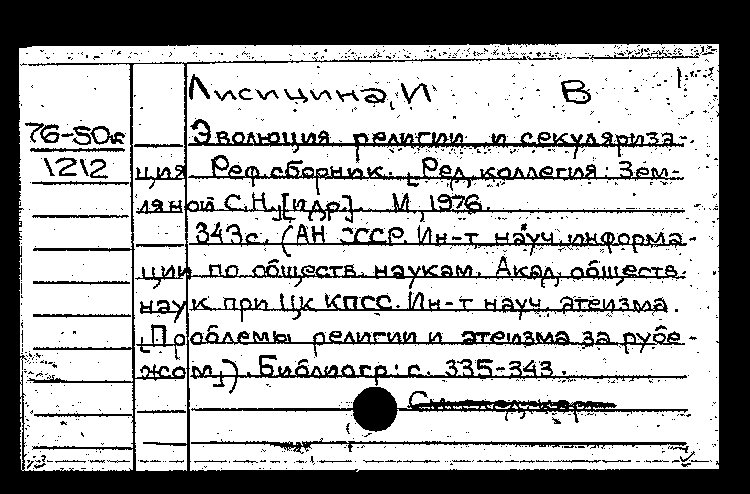 Лисицина, И В
76-50
1212
Эволюция религии и секуляриза-
ция Реф. сборник. [Ред. коллегия: Зем-
ляной С.Н. [и др]. М, 1976.
343с. (АН СССР. Ин-т науч. информа-
ции по обществ. наукам. Акад. обществ.
наук при Цк КПСС. Ин-т науч. атеизма.
[Проблемы религии и атеизма за рубе-
жом]). Библиогр: с. 335-343.